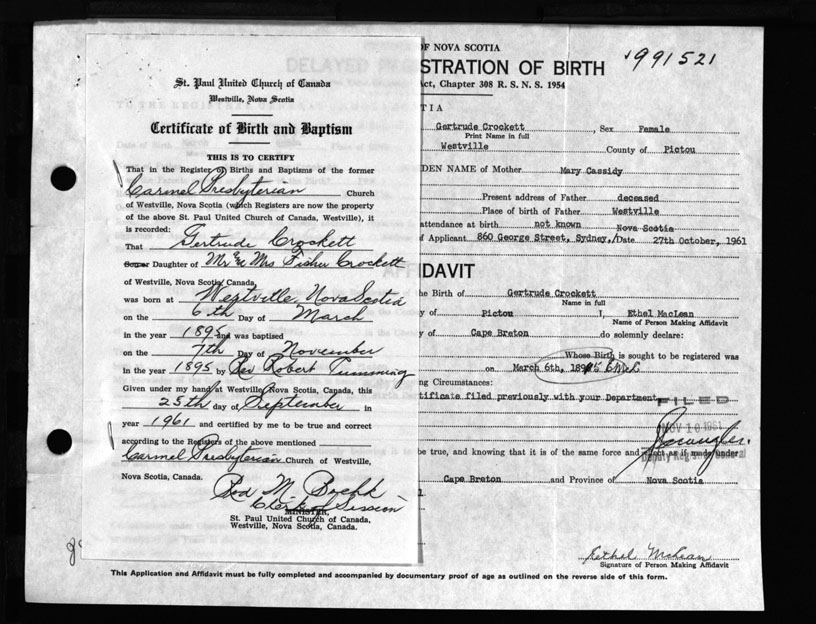 St. Paul United Church of Canada
Westville, Nova Scotia
Certificate of Birth and Baptism
THIS IS TO CERTIFY
That in the Register of Births and Baptisms of the former
Carmel Presbyterian Church
of Westville, Nova Scotia (which Registers are now the property
of the above St. Paul United Church of Canada, Westville), it
is recorded:
That Gertrude Crockett
Son or Daughter of Mr & Mrs Fisher Crockett
of Westville, Nova Scotia, Canada,
was born at Westville, Nova Scotia
on the 6th Day of March
in the year 1895 and was baptised
on the 7th Day of November
in the year 1895 by Rev Robert Cumming
Given under my hand at Westville, Nova Scotia, Canada, this
25th day of September in
year 1961 and certified by me to be true and correct
according to the Registers of the above mentioned
Carmel Presbyterian Church of Westville,
Nova Scotia, Canada.
Rod M.
Clerk of Session
MINISTER,
St. Paul United Church of Canada,
Westville, Nova Scotia, Canada.
OF NOVA SCOTIA
1991521
STRATION OF BIRTH
Act, Chapter 308 R. S. N. S. 1954
TIA
Gertrude Crockett, Sex Female
Print Name in full
Westville County of Pictou
DEN NAME of Mother Mary Cassidy
Present address of Father deceased
Place of birth of Father Westville
attendance at birth not known Nova Scotia
of Applicant 860 George Street, Sydney, Date 27th October, 1961
FIDAVIT
the Birth of Gertrude Crockett
Name in full
y of Pictou I, Ethel MacLean
Name of Person Making Affidavit
y of Cape Breton do solemnly declare:
Whose Birth is sought to be registered was
on March 6th, 1895 E McL
ng Circumstances:
tificate filed previously with your Department
FILED
NOV 10 1961
Deputy Registrar General
be true, and knowing that it is of the same force and effect as if made under
Cape Breton and Province of Nova Scotia
Ethel McLean
Signature of Person Making Affidavit
This Application and Affidavit must be fully completed and accompanied by documentary proof of age as outlined on the reverse side of this form.